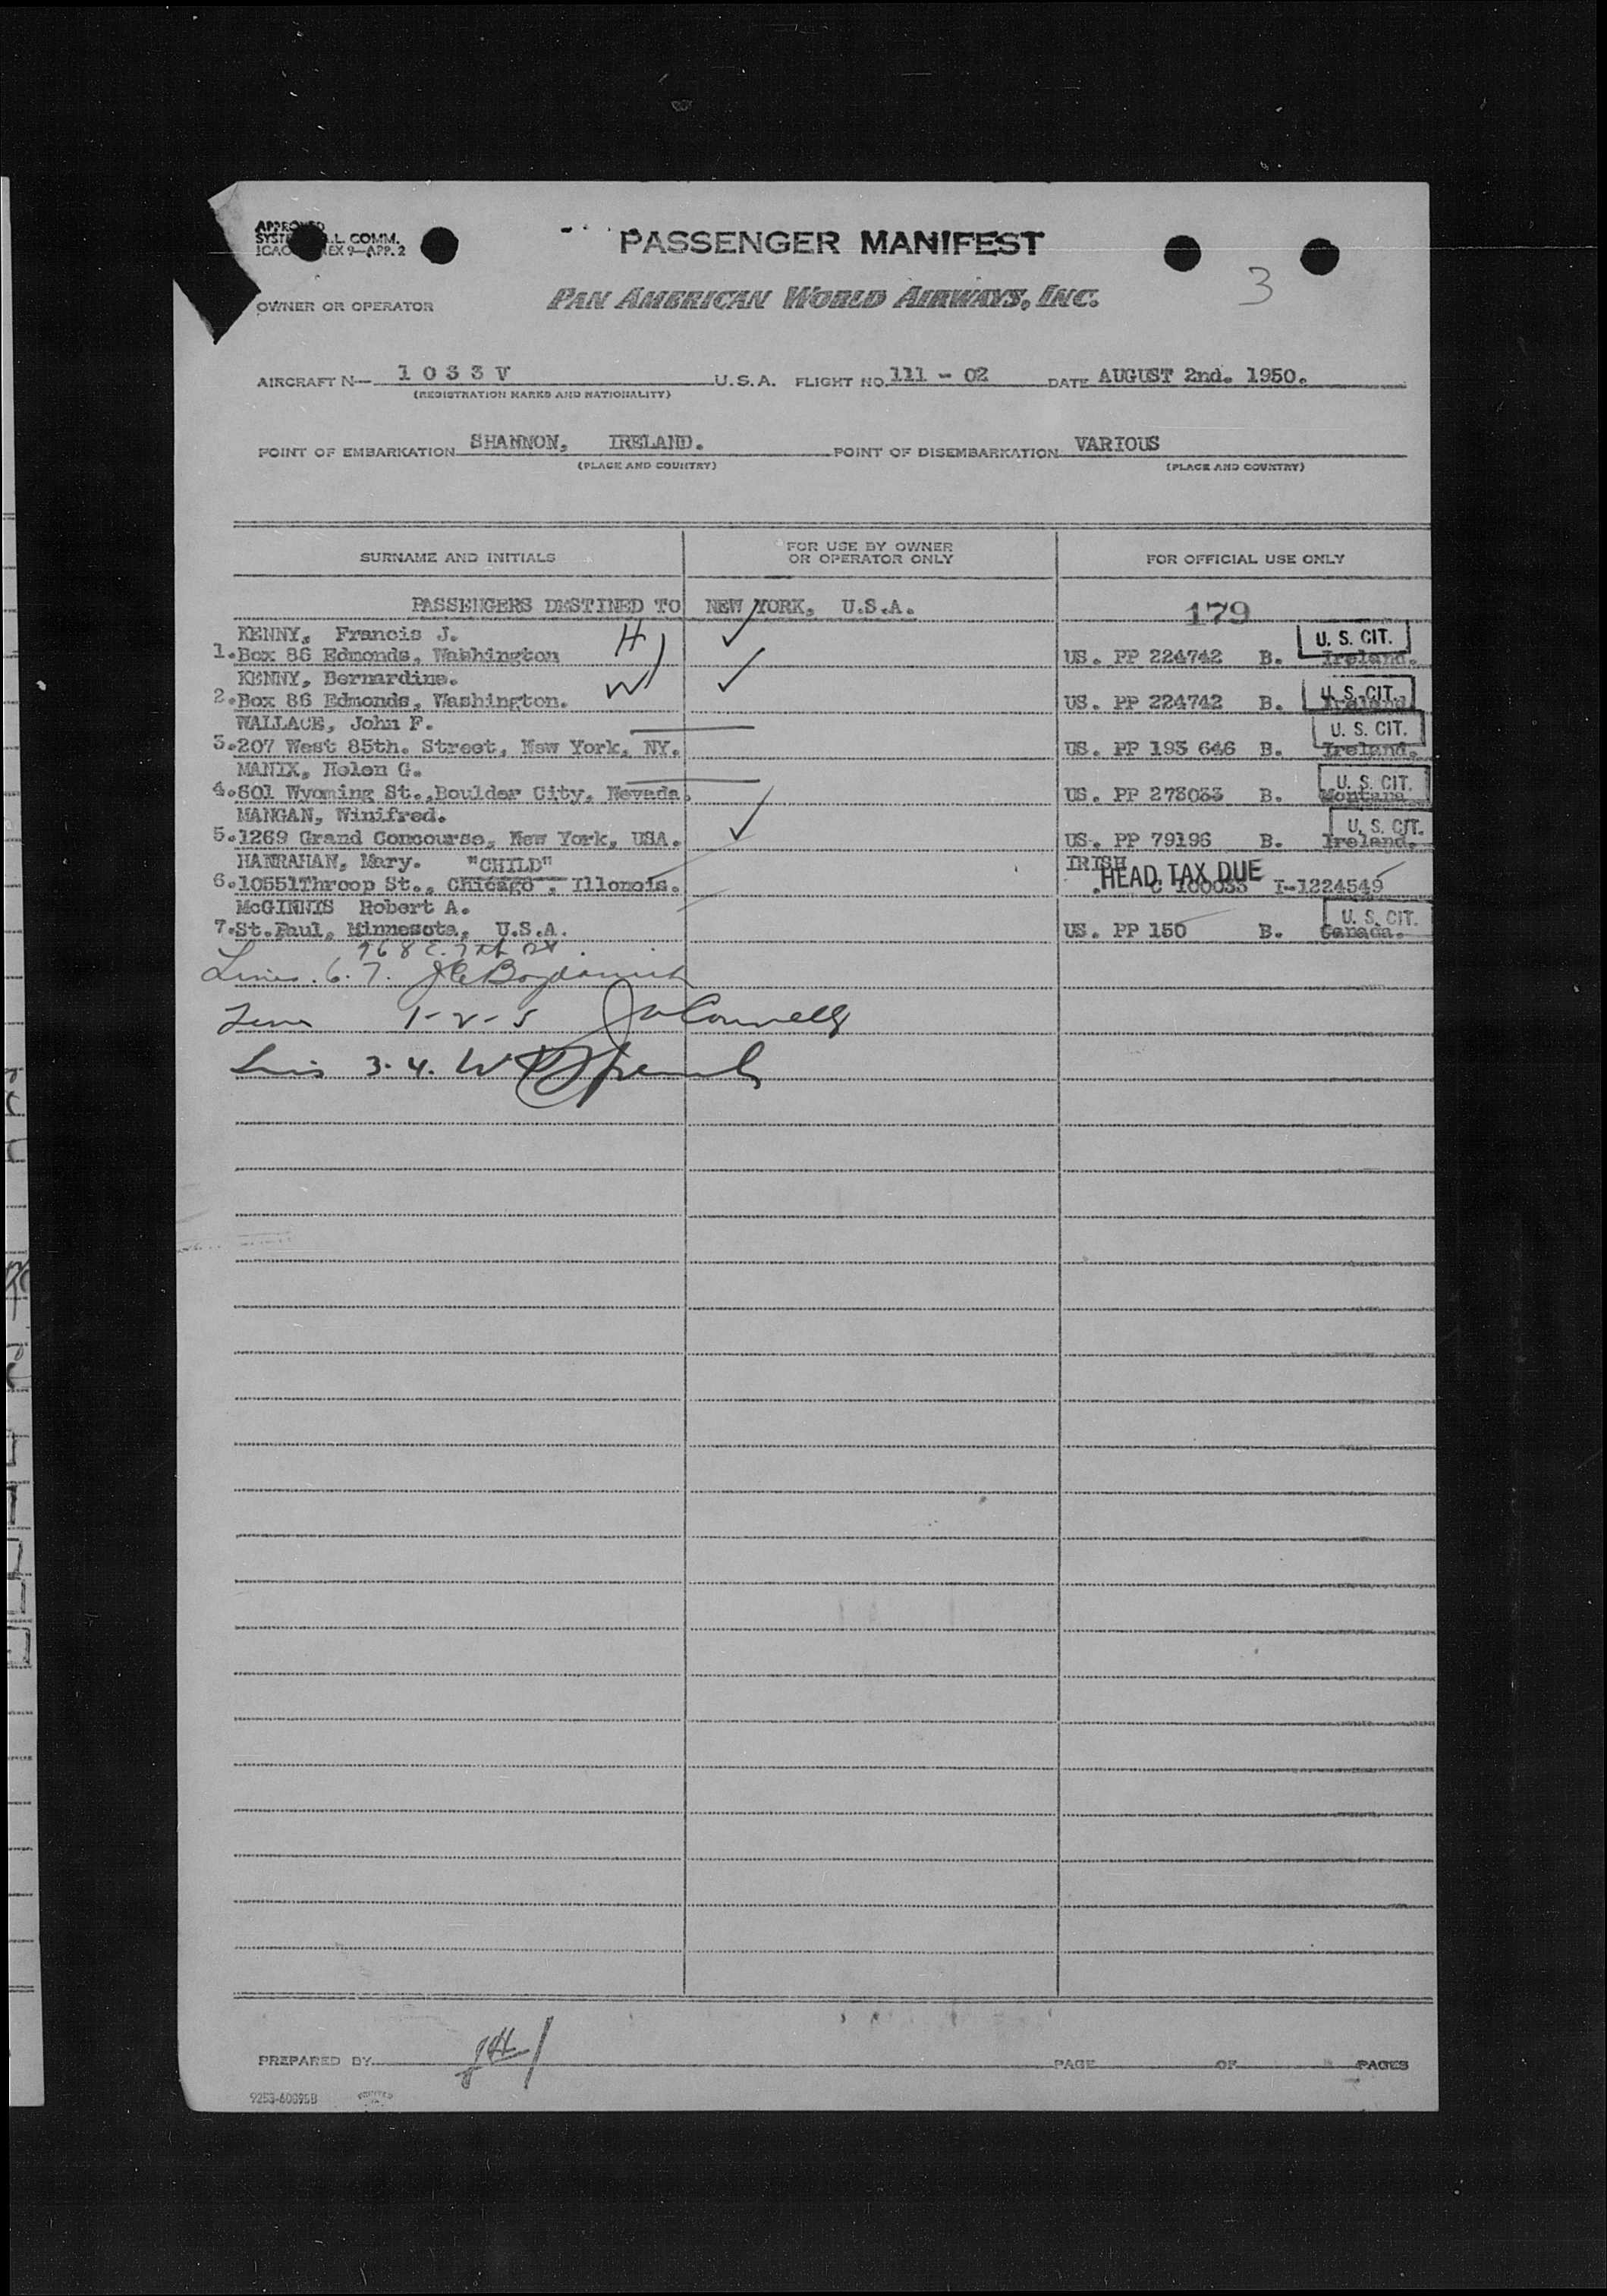 PASSENGER MANIFEST
L. COMM.
APP. 2
3
OWNER OR OPERATOR
PAN AMERICAN WORLD AIRWAYS, INC.
AIRCRAFT N— 1 0 3 3 V U.S.A. FLIGHT NO. 111 - 02 DATE AUGUST 2nd. 1950.
(REGISTRATION MARKS AND NATIONALITY)
POINT OF EMBARKATION SHANNON, IRELAND. POINT OF DISEMBARKATION VARIOUS
(PLACE AND COUNTRY) (PLACE AND COUNTRY)
SURNAME AND INITIALS FOR USE BY OWNER OR OPERATOR ONLY FOR OFFICIAL USE ONLY
PASSENGERS DESTINED TO NEW YORK, U.S.A. 179
KENNY, Francis J. H U. S. CIT.
1. Box 86 Edmonds, Washington US. PP 224742 B. Ireland.
KENNY, Bernardine. W U. S. CIT.
2. Box 86 Edmonds, Washington. US. PP 224742 B. Ireland
WALLACE, John F. U. S. CIT.
3. 207 West 85th. Street, New York, NY. US. PP 193 646 B. Ireland.
MANIX, Helen G. U. S. CIT.
4. 601 Wyoming St., Boulder City, Nevada. US. PP 273033 B. Montana
MANGAN, Winifred. U. S. CIT.
5. 1269 Grand Concourse, New York, USA. US. PP 79196 B. Ireland.
HANRAHAN, Mary. "CHILD" IRISH HEAD TAX DUE
6. 10551 Throop St., Chicago, Illonois. C 100033 I-1224549
McGINNIS Robert A. U. S. CIT.
7. St. Paul, Minnesota, U.S.A. US. PP 150 B. Canada.
968 E. 7th St.
Lines 6. 7.
Lines 1-2-5
Lines 3. 4.
PREPARED BY PAGE OF PAGES